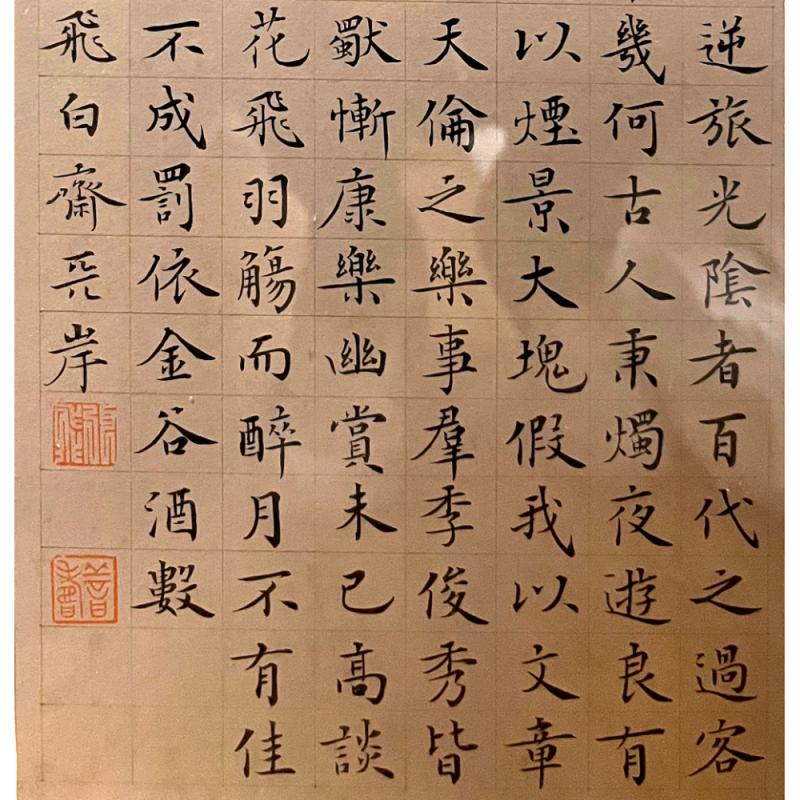 逆旅光陰者百代之過客
幾何古人秉燭夜遊良有
以煙景大塊假我以文章
天倫之樂事羣季俊秀皆
獨慚康樂幽賞未已高談
花飛羽觴而醉月不有佳
不成罰依金谷酒數
飛白齋岸